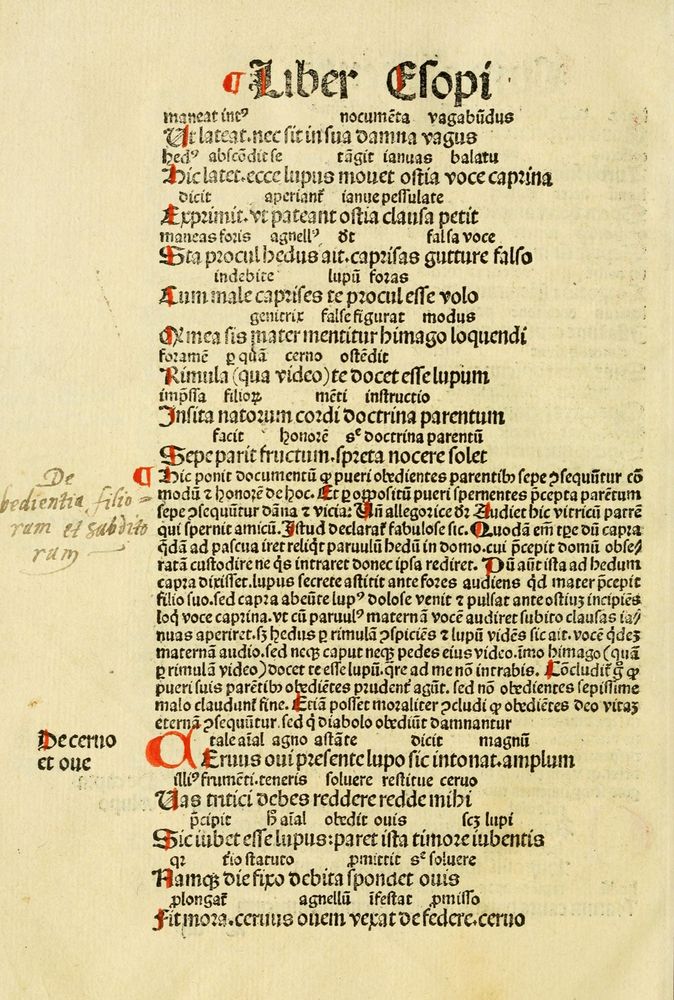 ¶ Liber Esopi
maneat intꝰ nocumēta vagabūdus
Ut lateat. nec sit in sua damna vagus
hedꝰ abscōdit se tāgit ianuas balatu
Hic latet. ecce lupus mouet ostia voce caprina
dicit aperiant̄ ianue pessulate
Exprimit. vt pateant ostia clausa petit
maneas foris agnellꝰ dr̄t falsa voce
Sta procul hedus ait. caprisas gutture falso
indebite lupū foras
Cum male caprises te procul esse volo
genitrix false figurat modus
Ꝙ mea sis mater mentitur himago loquendi
foramē ꝑ quā cerno ostēdit
Rimula (qua video) te docet esse lupum
imp̄ssa filioꝝ mēti instructio
Insita natorum cordi doctrina parentum
facit honorē sꝫ doctrina parentū
Sepe parit fructum. spreta nocere solet
¶ Hic ponit documentū ꝙ pueri obedientes parentibꝰ sepe ꝯsequūtur cō
modū ⁊ honorē de hoc. Et ꝑ oppositū pueri spernentes p̄cepta parētum
sepe ꝯsequūtur dāna ⁊ vicia: Un̄ allegorice dr̄. Audiet hic vitricū patrē
qui spernit amicū. Istud declarat̄ fabulose sic. Quodā em̄ tꝑe dū capra
q̄dā ad pascua iret reliqt̄ paruulū hedū in domo. cui p̄cepit domū obse⸗
ratā custodire ne q̄s intraret donec ipsa rediret. Dū aūt ista ad hedum
capra dixisset. lupus secrete astitit ante fores audiens qd̄ mater p̄cepit
filio suo. sed capra abeūte lupꝰ dolose venit ⁊ pulsat ante ostiuꝫ incipiēs
loq̄ voce caprina. vt cū paruulꝰ maternā vocē audiret subito clausas ia⸗
nuas aperiret. sꝫ hedus ꝑ rimulā ꝯspiciēs ⁊ lupū vidēs sic ait. vocē qd̄eꝫ
maternā audio. sed neqꝫ caput neqꝫ pedes eius video. īmo himago (quā
ꝑ rimulā video) docet te esse lupū. q̄re ad me nō intrabis. Cōcludit̄ g̊ ꝙ
pueri suis parētibꝰ obediētes prudent̄ agūt. sed nō obedientes sepissime
malo claudunt̄ fine. Etiā posset moraliter ꝯcludi ꝙ obediētes deo vitaꝫ
eternā ꝯsequūtur. sed q̄ diabolo obediūt damnantur
De
bedientia filio⸗
rum et subdito
rum
De ceruo
et oue
tale aīal agno astāte dicit magnū
CEruus oui presente lupo sic intonat. amplum
illiꝰ frumēti. teneris soluere restitue ceruo
Uas tritici debes reddere redde mihi
p̄cipit h̄ aīal obedit ouis scꝫ lupi
Sic iubet esse lupus: paret ista timore iubentis
qꝛ t̄io statuto ꝓmittit sꝫ soluere
Namqꝫ die fixo debita spondet ouis
ꝓlongat̄ agnellū īfestat ꝓmisso
Fit mora. ceruus ouem vexat de federe. ceruo